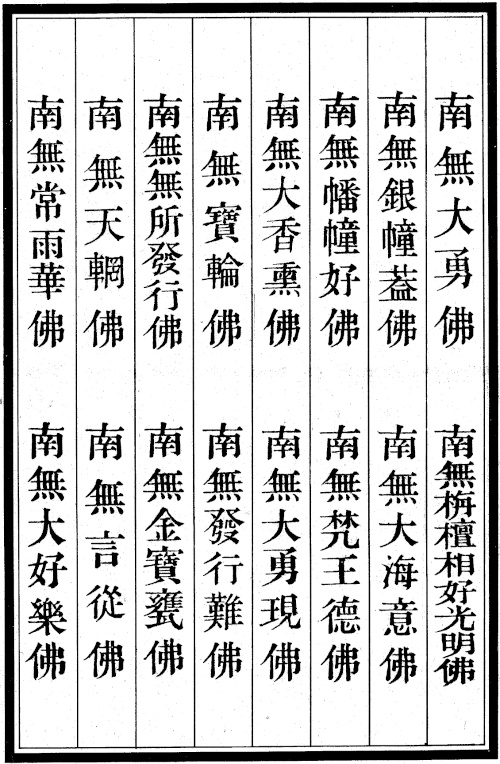 南無大勇佛 南無栴檀相好光明佛
南無銀幢葢佛 南無大海意佛
南無幡幢好佛 南無梵王德佛
南無大香熏佛 南無大勇現佛
南無寶輪佛 南無發行難佛
南無無所發行佛 南無金寶甕佛
南無天輞佛 南無言從佛
南無常雨華佛 南無大好樂佛